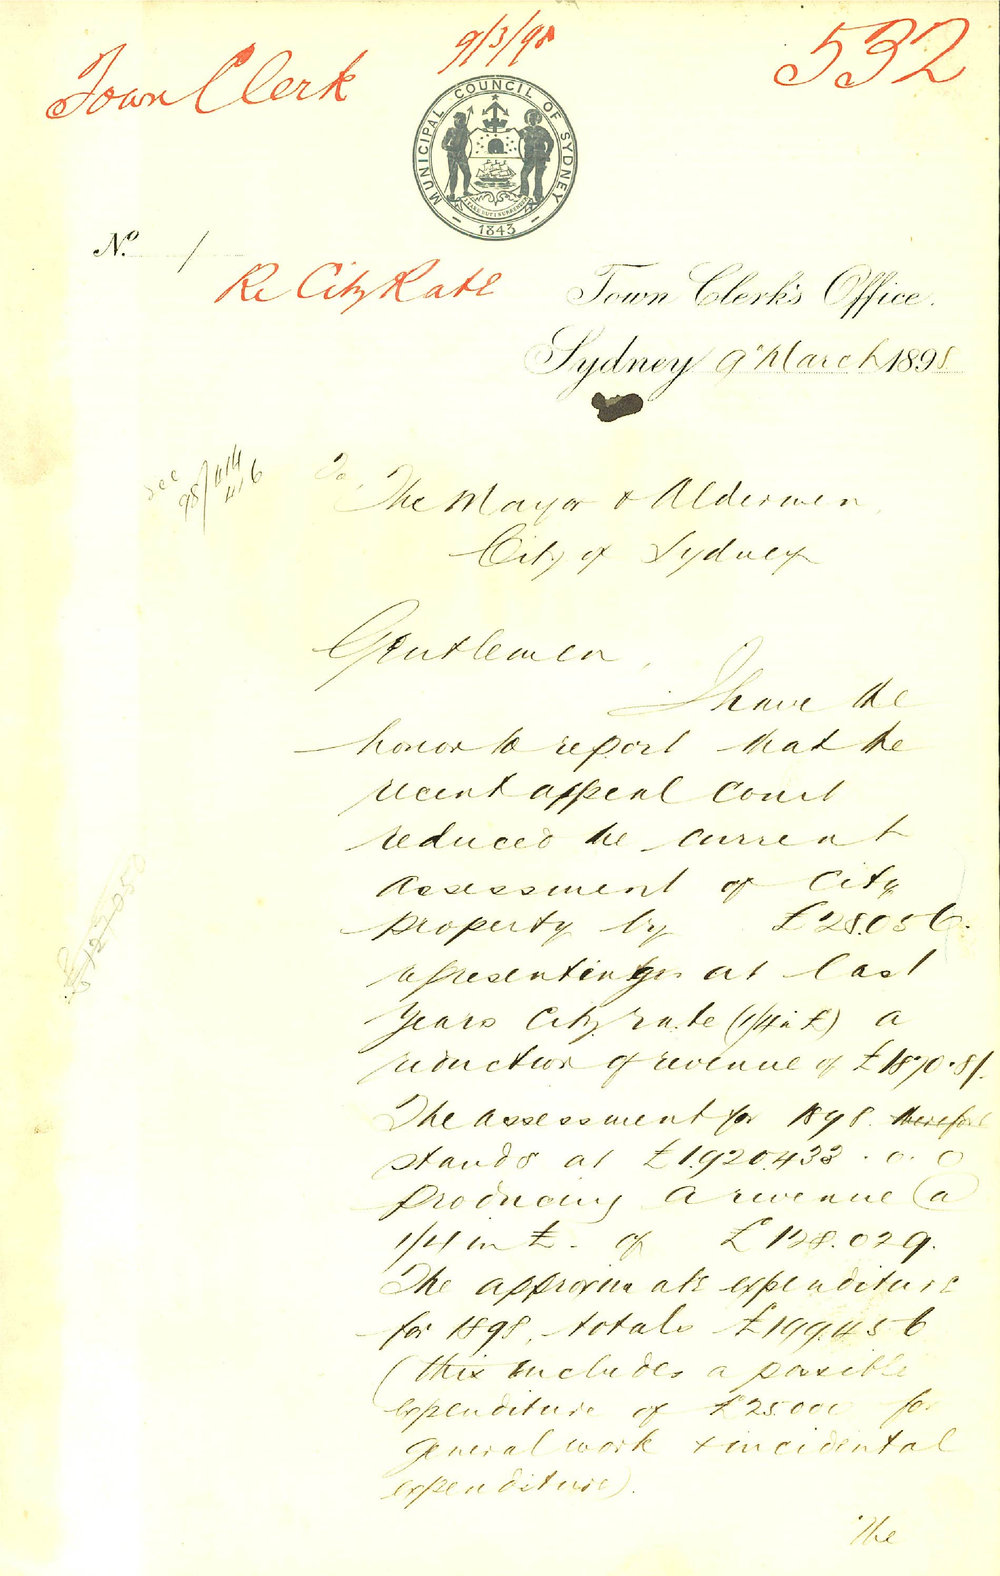 Town Clerk
9/3/98
532
MUNICIPAL COUNCIL OF SYDNEY
1843
No. 1
Re City Rate
Town Clerk's Office.
Sydney 9 March 1898
see
98/414
416
To
The Mayor & Aldermen
City of Sydney
Gentlemen,
I have the
honor to report that the
recent appeal court
reduced the current
assessment of City
property by £28.056.
representing at last
years City rate (1/4 in £) a
reduction of revenue of £1870.8/.
The assessment for 1898. therefore
stands at £1.920.433.0.0
producing a revenue @
1/4 in £. of £128.029.
The approximate expenditure
for 1898, totals £199.456
(this includes a possible
expenditure of £25000 for
general work & incidental
expenditure).
The